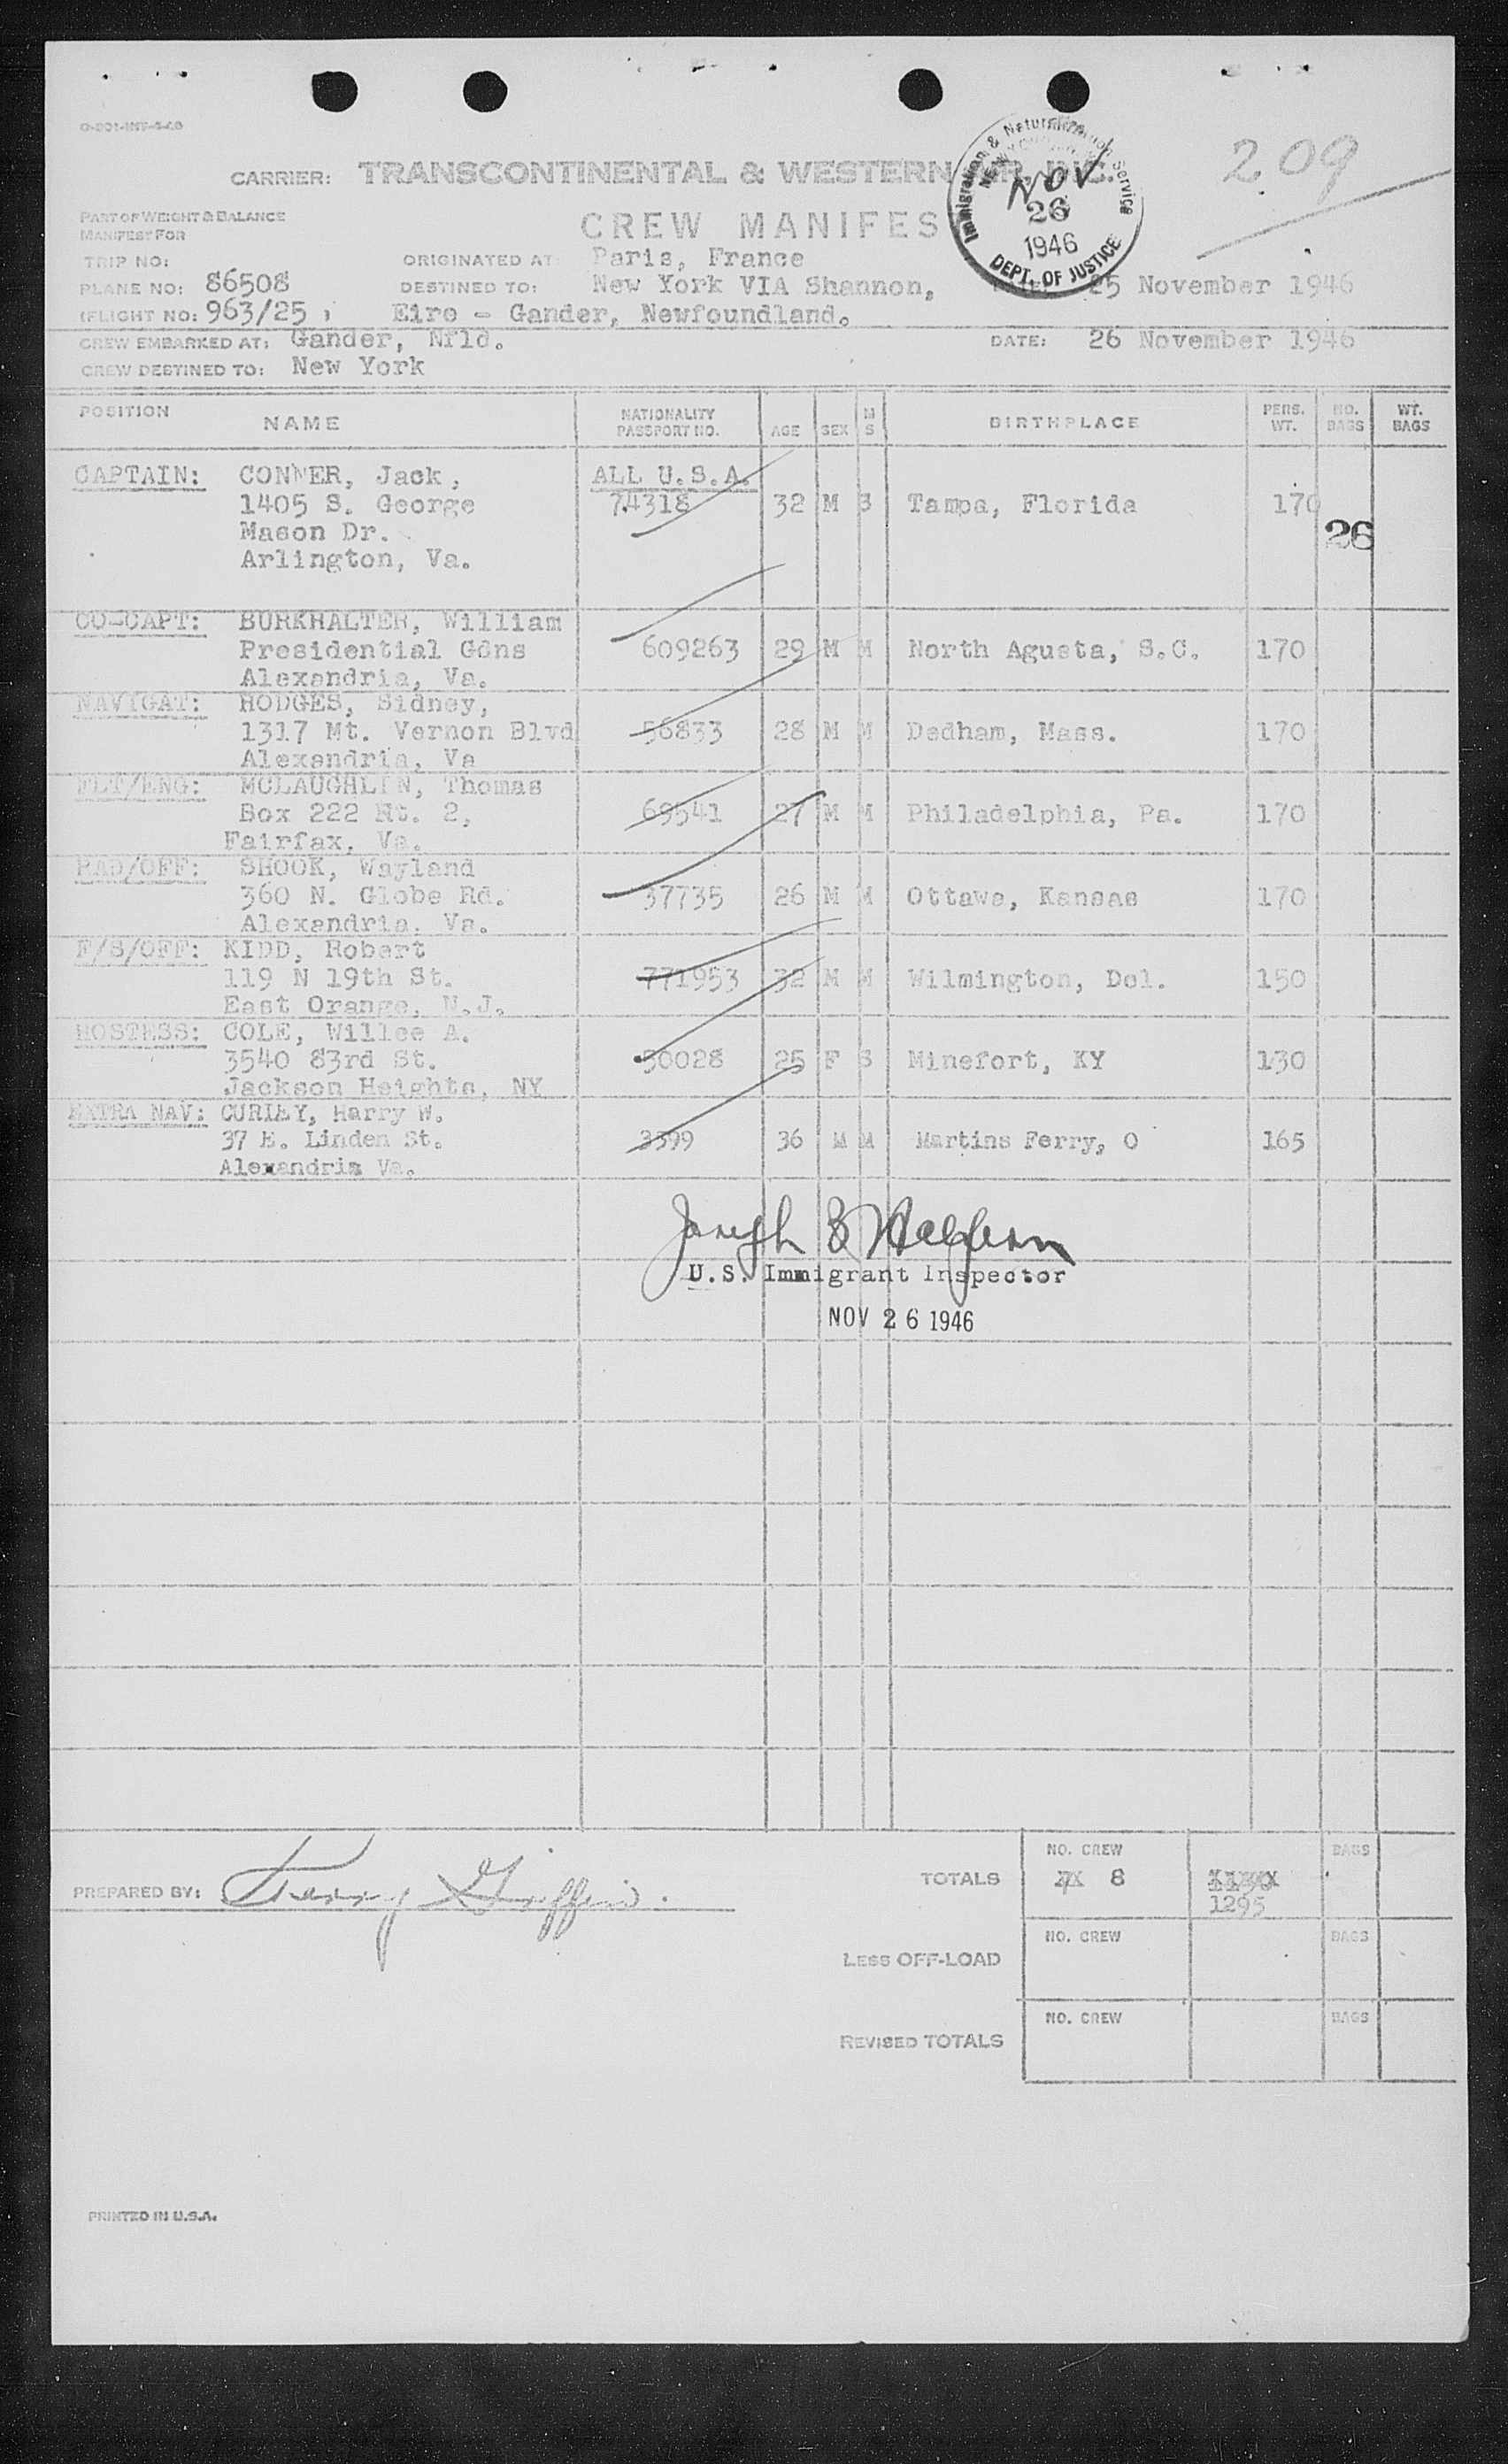 O-201-INT-4-46
209
CARRIER: TRANSCONTINENTAL & WESTERN AIR, INC.
Immigration & Naturalization Service
NOV
26
1946
DEPT. OF JUSTICE
PART OF WEIGHT & BALANCE
MANIFEST FOR
CREW MANIFES
TRIP NO: ORIGINATED AT: Paris, France
PLANE NO: 86508 DESTINED TO: New York VIA Shannon, 25 November 1946
(FLIGHT NO: 963/25 , Eire - Gander, Newfoundland.
CREW EMBARKED AT: Gander, Nfld. DATE: 26 November 1946
CREW DESTINED TO: New York
POSITION NAME NATIONALITY PASSPORT NO. AGE SEX M S BIRTHPLACE PERS. WT. NO. BAGS WT. BAGS
CAPTAIN: CONNER, Jack, ALL U.S.A.
1405 S. George 74318 32 M S Tampa, Florida 170
Mason Dr. 26
Arlington, Va.
CO-CAPT: BURKHALTER, William
Presidential Gdns 609263 29 M M North Agusta, S.C. 170
Alexandria, Va.
NAVIGAT: HODGES, Sidney,
1317 Mt. Vernon Blvd 56833 28 M M Dedham, Mass. 170
Alexandria, Va
FLT/ENG: MCLAUGHLIN, Thomas
Box 222 Rt. 2, 69541 27 M M Philadelphia, Pa. 170
Fairfax, Va.
RAD/OFF: SHOOK, Wayland
360 N. Globe Rd. 37735 26 M M Ottawa, Kansas 170
Alexandria, Va.
F/S/OFF: KIDD, Robert
119 N 19th St. 771953 32 M M Wilmington, Del. 150
East Orange, N.J.
HOSTESS: COLE, Willee A.
3540 83rd St. 50028 25 F S Minefort, KY 130
Jackson Heights, NY
EXTRA NAV: CURLEY, Harry W.
37 E. Linden St. 3399 36 M M Martins Ferry, O 165
Alexandria Va.
U.S. Immigrant Inspector
NOV 26 1946
PREPARED BY: Griffin.
TOTALS NO. CREW 8 BAGS
1295
LESS OFF-LOAD NO. CREW BAGS
REVISED TOTALS NO. CREW BAGS
PRINTED IN U.S.A.